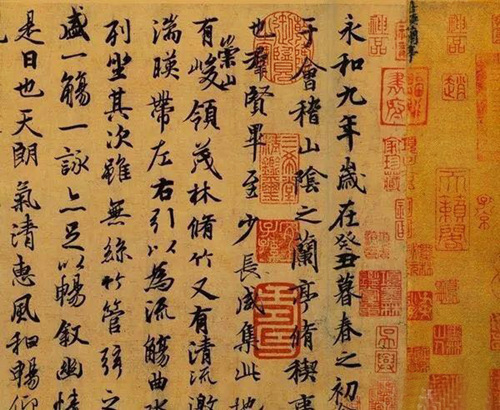 神品
天籟閣
子京
永和九年歲在癸丑暮春之初
于會稽山陰之蘭亭脩稧事
也羣賢畢至少長咸集此地
有崇山峻領茂林脩竹又有清流激
湍暎帶左右引以為流觴曲水
列坐其次雖無絲竹管弦之
盛一觴一詠亦足以暢叙幽情
是日也天朗氣清惠風和暢仰